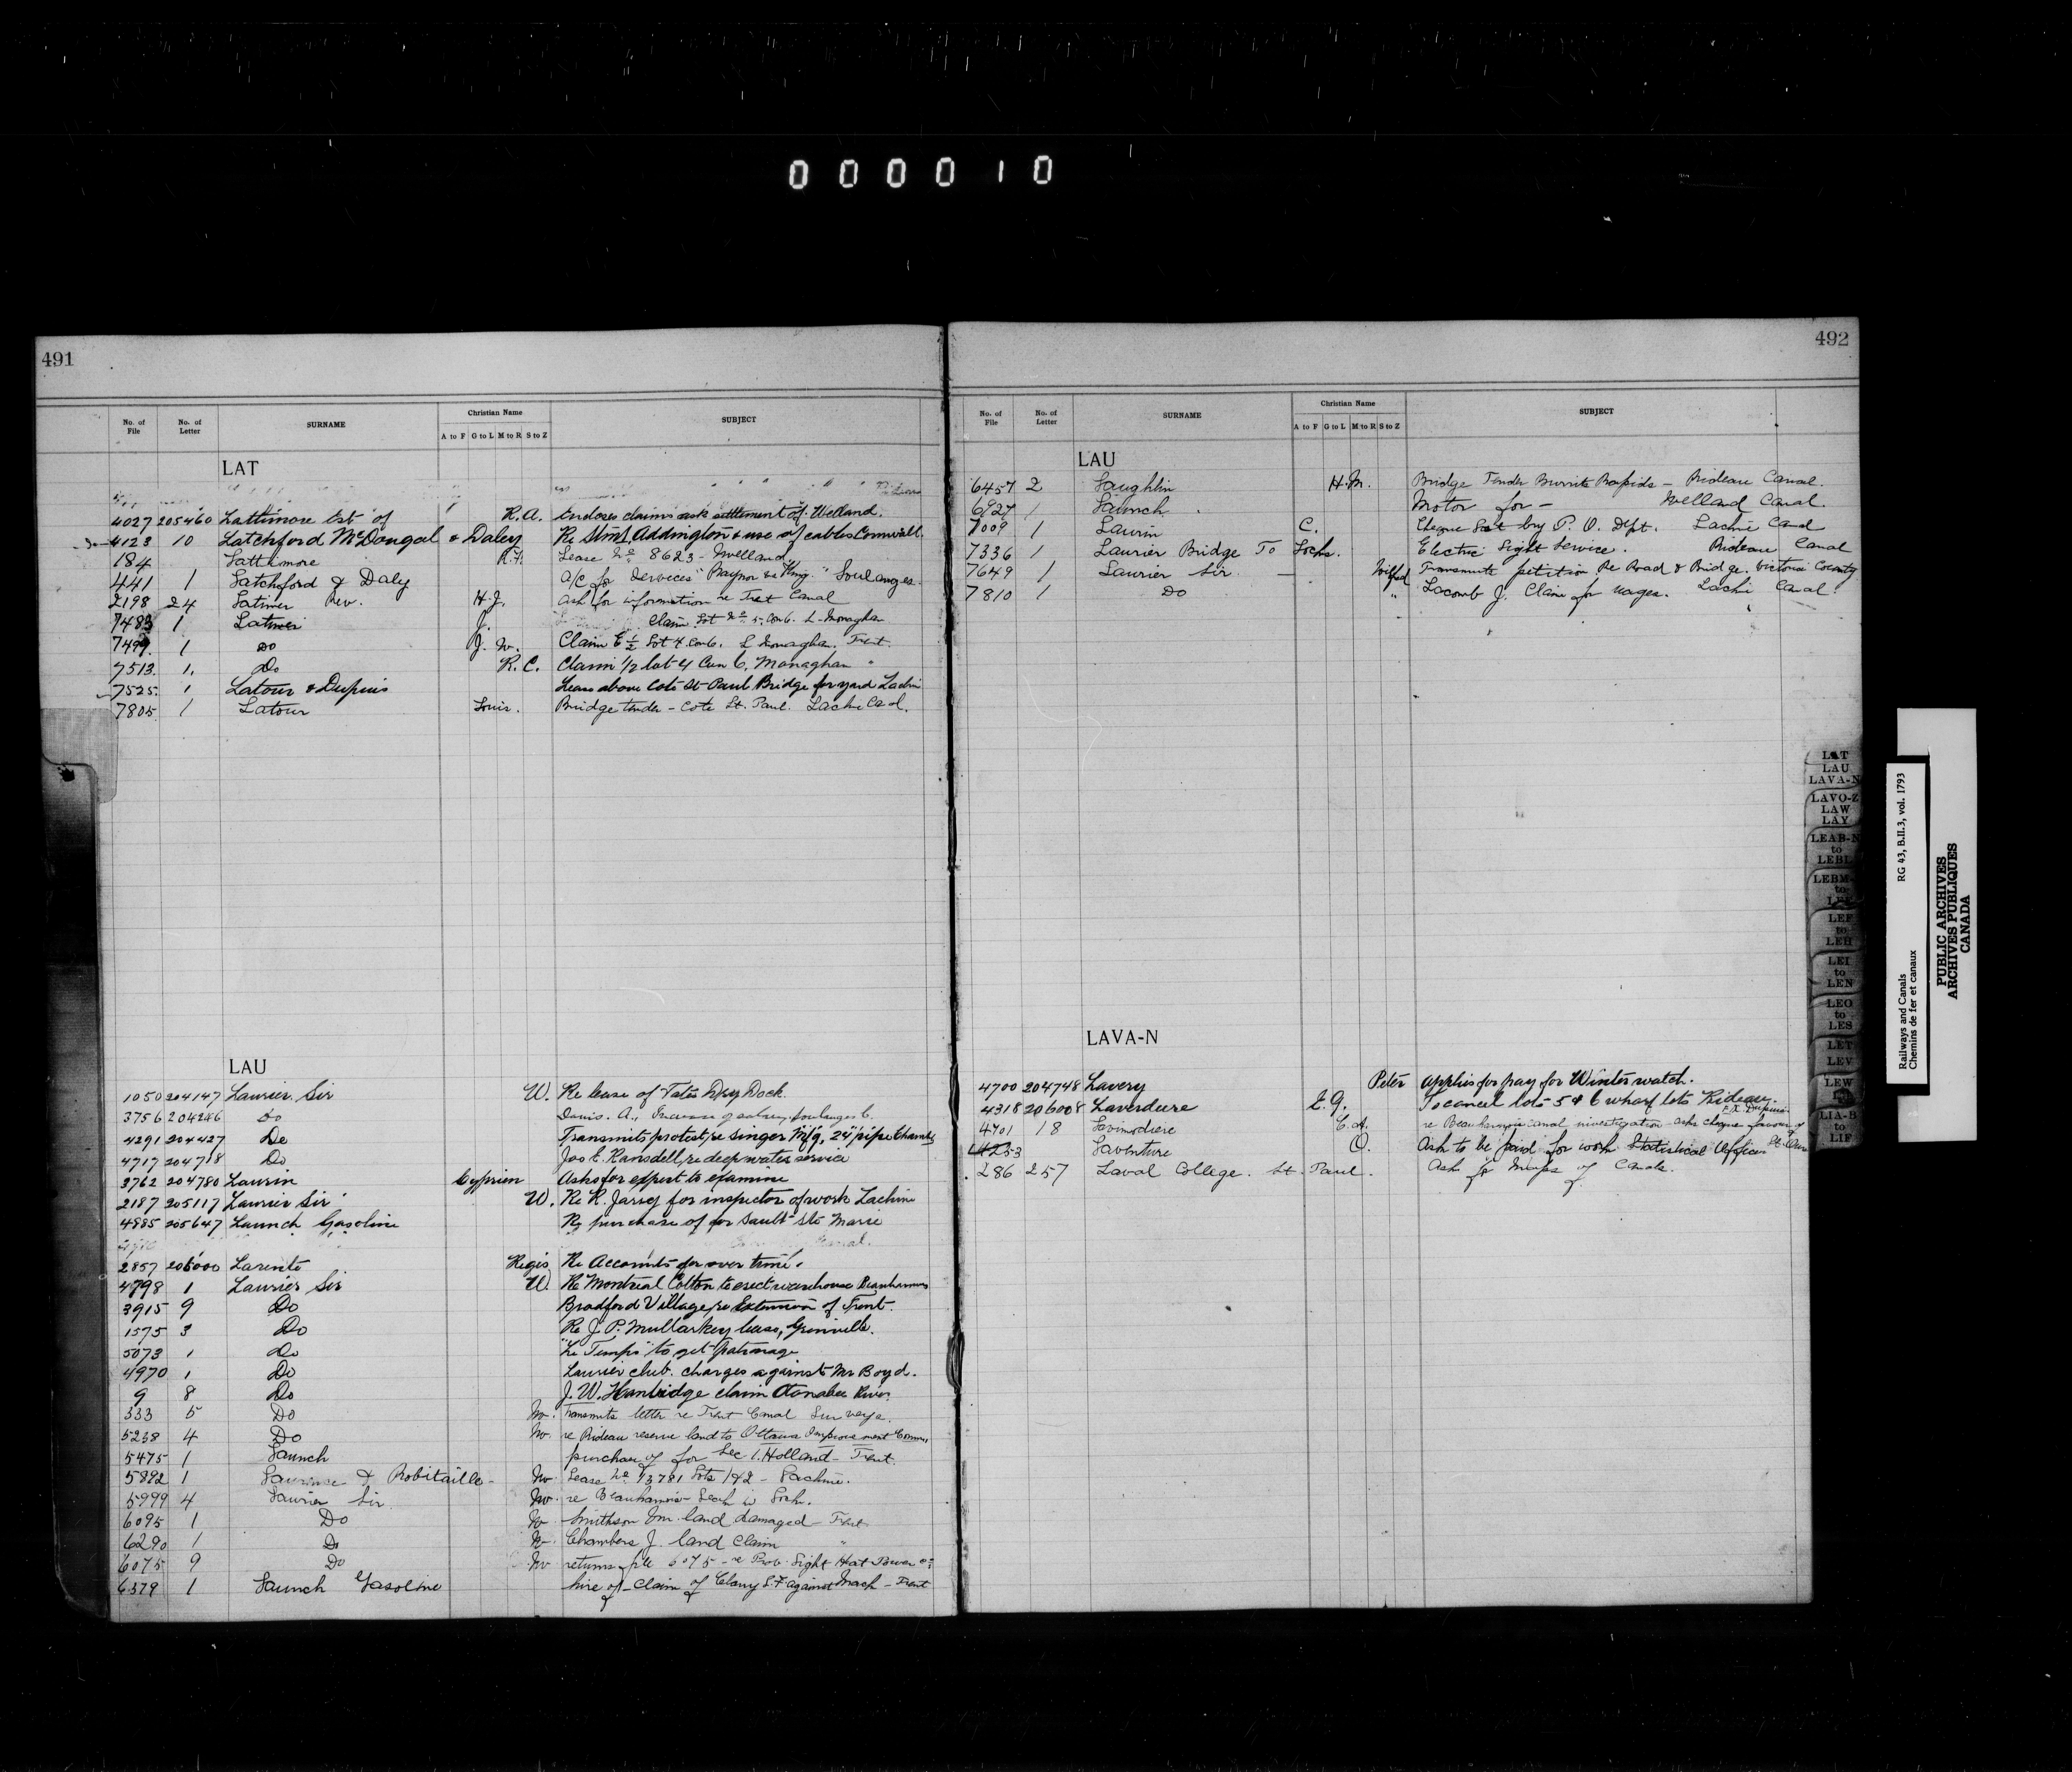 000010
491
No. of File No. of Letter SURNAME Christian Name SUBJECT
A to F G to L M to R S to Z
LAT
4027 205460 Lattimore Est of R.A. Encloses claims ask settlement of. Welland.
4123 10 Latchford McDougal & Daley Re Stmr Addington & use of cables Cornwall.
184 Lattimore R.A. Lease No 8623 - Welland
441 1 Latchford & Daly A/C for Services "Raynor Soulanges.
2198 24 Latimer Rev. H.J. Ask for information re Trent Canal
7483 1 Latimer J. Claim Lot No 5. Con 6. L. Monaghan
7499. 1 Do J. W. Claim E ½ Lot 4. Con 6. L Monaghan. Trent.
7513. 1. Do R. C. Claim ½ lot 4 Con 6, Monaghan "
7525. 1 Latour & Dupuis Lease above Cote St-Paul Bridge for yard Lachin
7805. 1 Latour Louis. Bridge tender - Cote St. Paul. Lachine Canal.
LAU
1050 204147 Laurier Sir W. Re lease of Yates Dry Dock.
3756 204246 Do Davis. A., Increase of salary, Soulanges C.
4291 204427 Do Transmits protest re Singer Mfg. 24" pipe Chambly
4717 204718 Do Jos E. Ransdell, re deep water service
3762 204780 Laurin Cyprien Asks for expert to examine
2187 205117 Laurier Sir W. Re R. Jarry for inspector of work Lachine
4885 205647 Launch Gasoline Re purchase of for Sault Ste Marie
2857 206000 Larente Regis Re Accounts for over time.
4798 1 Laurier Sir W. Re Montreal Cotton to erect warehouse Beauharnois
3915 9 Do Bradford Village, re Extension of Trent.
1575 3 Do Re J. P. Mullarkey lease, Grenville.
5073 1 Do "Le Temps" to get patronage
4970 1 Do Laurier club. charges against Mr Boyd.
9 8 Do J. W. Hanbidge claim Otonabee River
333 5 Do W. Transmits letter re Trent Canal Surveys.
5238 4 Do W. re Rideau reserve land to Ottawa Improvement Comm.
5475 1 Launch purchase of for Sec 1. Holland - Trent.
5892 1 & Robitaille - W. Lease No 13781 Lots 1&2 - Lachine.
5999 4 Laurier Sir. W. re Beauharnois Leak in Lock.
6095 1 Do W. Smithson Wm. land damaged - Trent
6290 1 Do W. Chambers J. land Claim "
6075 9 Do W returns file 6075 - re Prov. Light Heat Power Co
6379 1 Launch Gasoline hire of - Claim of Clary S.F against Mach - Trent
492
No. of File No. of Letter SURNAME Christian Name SUBJECT
A to F G to L M to R S to Z
LAU
6457 2 Laughlin H.M. Bridge Tender Burritts Rapids - Rideau Canal.
6927 1 Launch Motor for - Welland Canal.
7009 1 Laurin C. Cheque Sent by P. O. Dept. Lachine Canal
7336 1 Laurier Bridge To Locks. Electric Light Service. Rideau Canal
7649 1 Laurier Sir. Wilfred Transmits petition Re Road & Bridge. Victoria County
7810 1 Do " Lacomb J. Claim for wages. Lachine Canal.
LAVA-N
4700 204748 Lavery Peter applies for pay for Winter watch.
4318 206008 Laverdure E.G. To cancel lots 5 & 6 wharf lots Rideau.
4701 18 Lavimodiere C.A. re Beauharnois Canal investigation asks cheque favour of F.X. Dupuis
4253 Laventure O. Ask to be paid for work Statistical Officer
286 257 Laval College. St. Paul. Ask for Maps of Canals.
LAT
LAU
LAVA-N
LAVO-Z
LAW
LAY
LEAB-N
to
LEBL
LEBM-
to
LEF
to
LEH
LEI
to
LEN
LEO
to
LES
LET
LEV
LEW
LIA-B
to
LIF
Railways and Canals RG 43, B.II.3, vol. 1793
Chemins de fer et canaux
PUBLIC ARCHIVES
ARCHIVES PUBLIQUES
CANADA